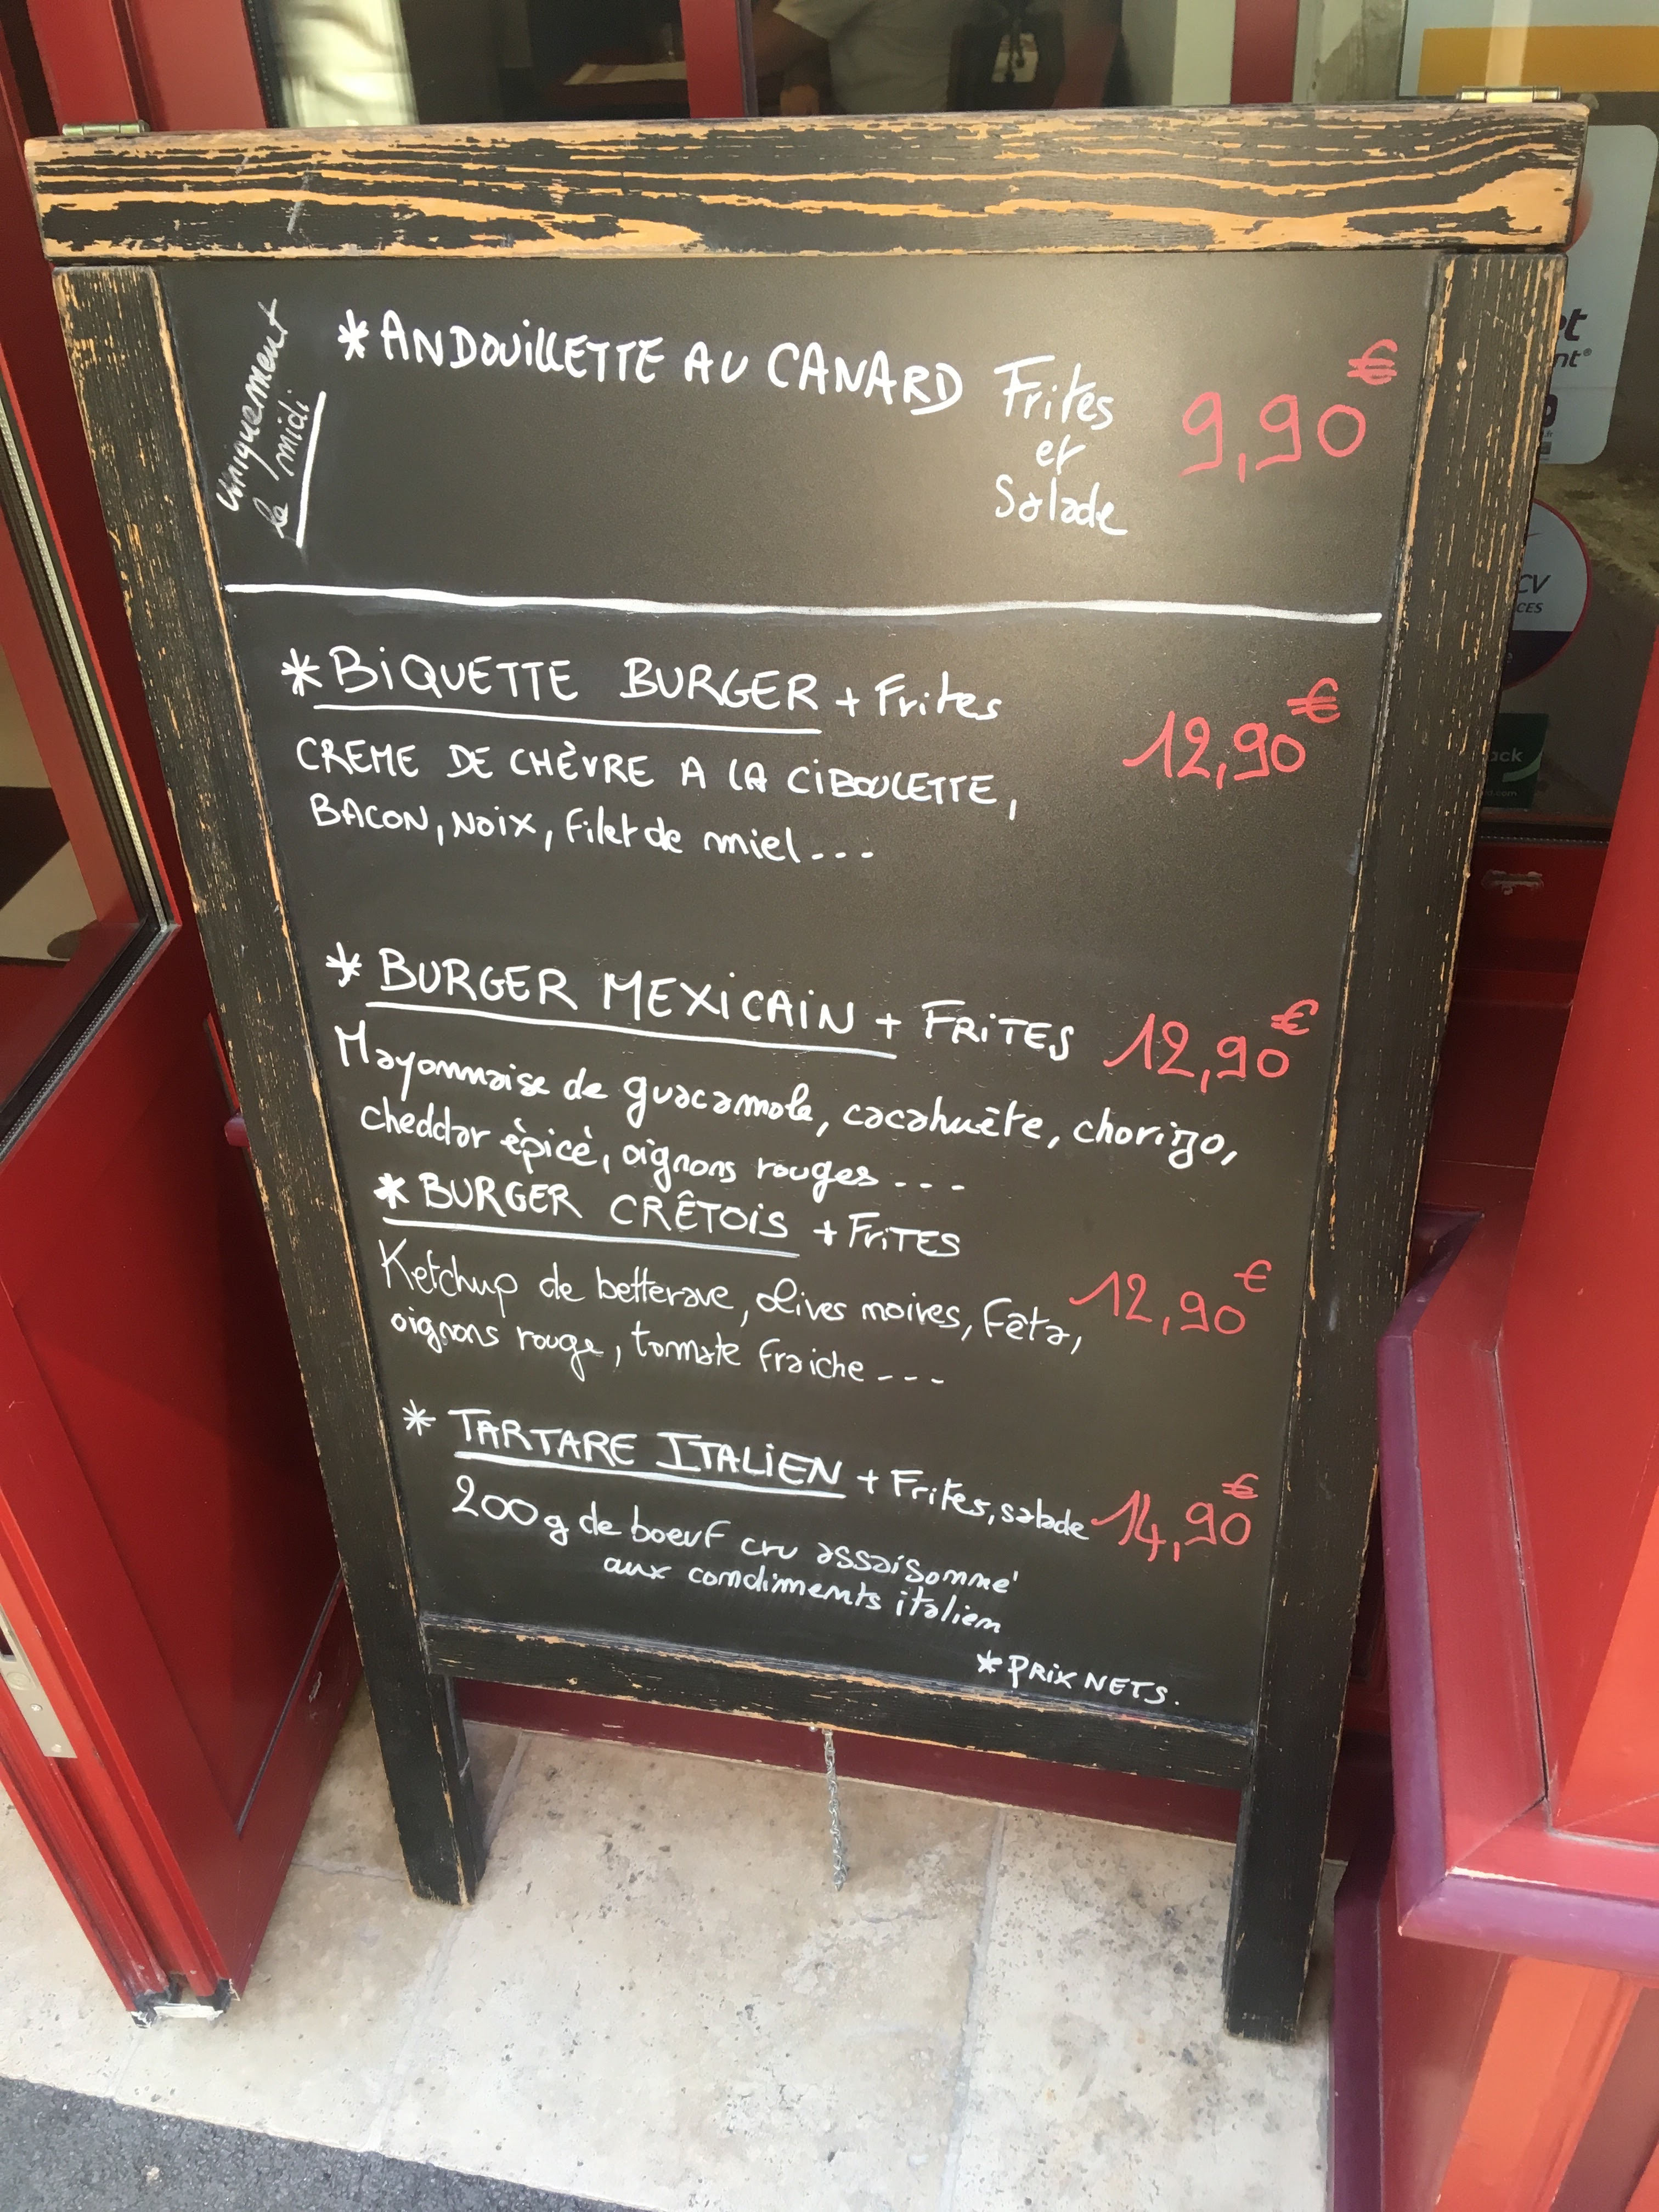 uniquement
le midi
*ANDOUILLETTE AU CANARD Frites
et
Salade
9,90€
*BIQUETTE BURGER + Frites
12,90€
CREME DE CHÈVRE A LA CIBOULETTE,
BACON, NOIX, Filet de miel...
*BURGER MEXICAIN + FRITES 12,90€
Mayonnaise de guacamole, cacahuète, chorizo,
cheddar épicé, oignons rouges...
*BURGER CRÊTOIS + FRITES
12,90€
Ketchup de betterave, olives noires, Fêta,
oignons rouge, tomate fraiche...
* TARTARE ITALIEN + Frites, salade 14,90€
200g de boeuf cru assaisonné
aux condiments italien
*PRIX NETS.
CV